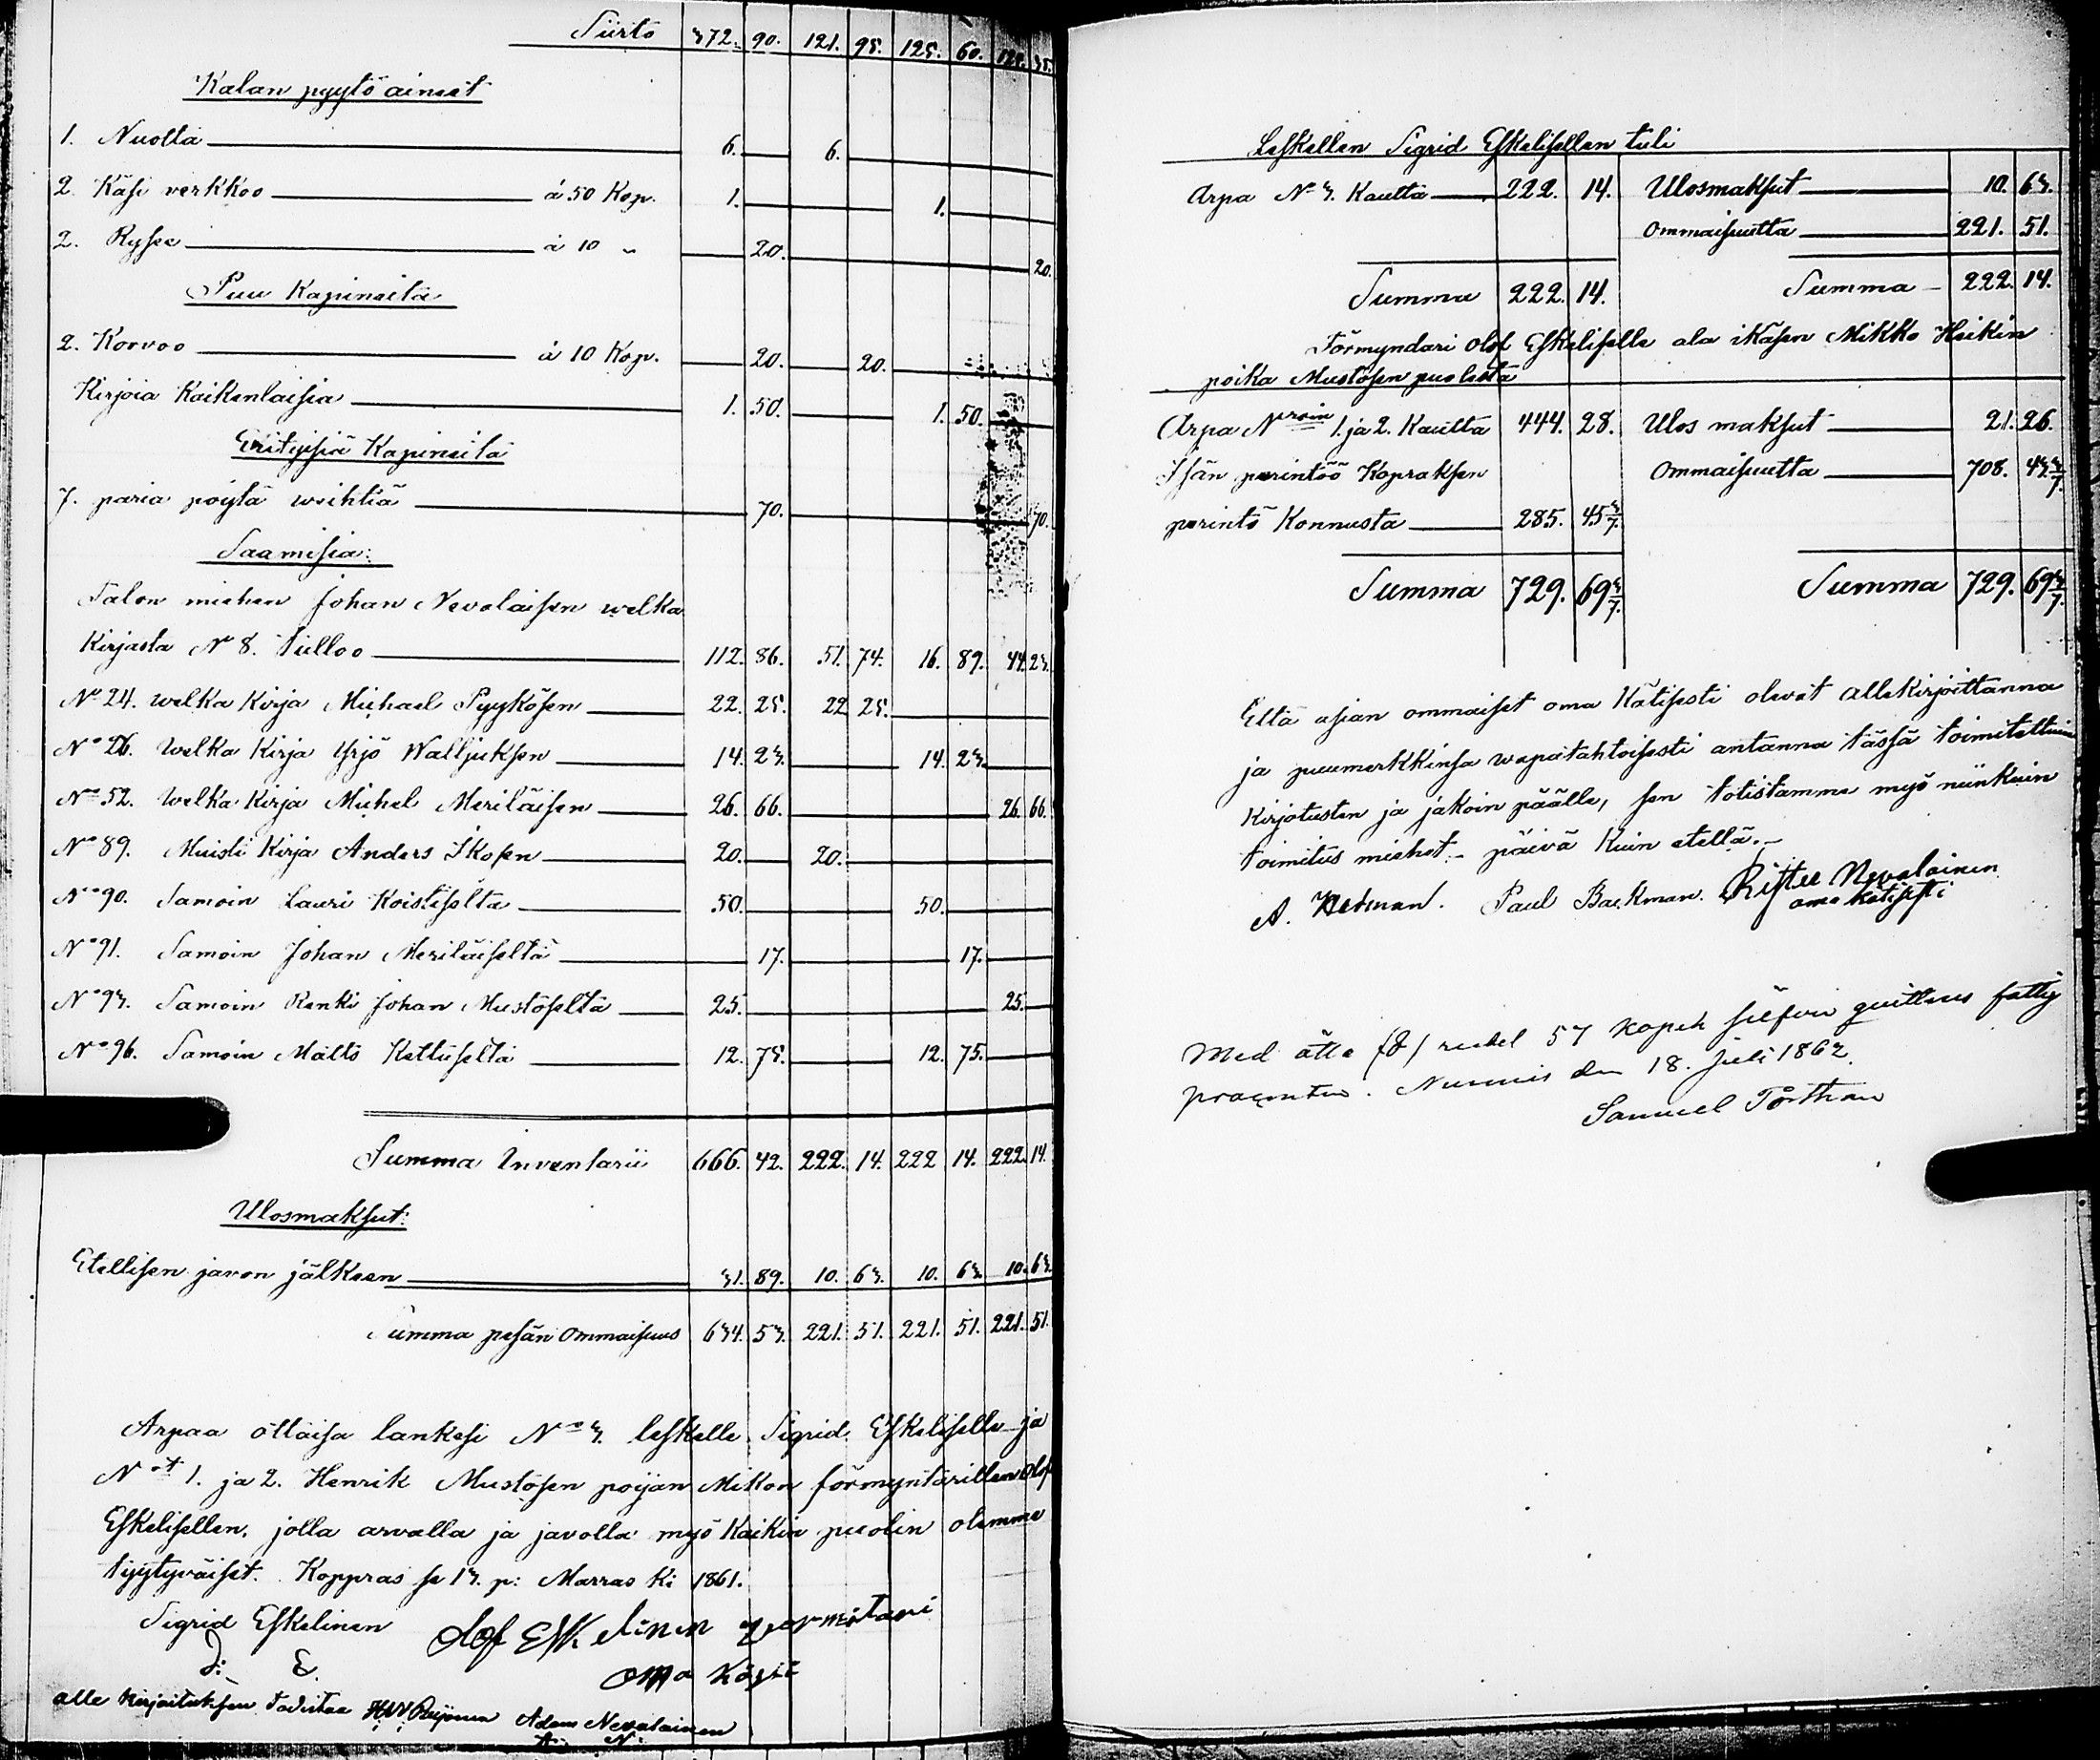 Siirto 372. 90. 121. 95. 125. 60. 125. 35.
Kalan pyytö aineet
1. Nuotta 6. 6.
2. Käsi verkkoo à 50 Kop. 1. 1.
2. Rysee à 10 " 20. 20.
Puu Kapineita
2. Korvoo à 10 Kop. 20. 20.
Kirjoia Kaikenlaisia 1. 50. 1. 50.
Erityisiä Kapineita
7. paria pöytä weihtiä 70. 70.
Saamisia:
Talon miehen Johan Nevalaisen welka
Kirjasta No 8. tulloo 112. 86. 51. 74. 16. 89. 44. 23.
No 24. welka Kirja Michael Pyykösen 22. 25. 22. 25.
No 26. Welka Kirja Yrjö Walljuksen 14. 23. 14. 23.
No 52. Welka Kirja Michel Meriläisen 26. 66. 26. 66.
No 89. Muisti Kirja Anders Ikosen 20. 20.
No 90. Samoin Lauri Koistiselta 50. 50.
No 91. Samoin Johan Meriläiseltä 17. 17.
No 93. Samoin Renki Johan Mustoseltä 25. 25.
No 96. Samoin Matts Kettuselta 12. 75. 12. 75.
Summa Inventarii 666. 42. 222. 14. 222 14. 222. 14.
Ulosmaksut:
Etellisen javon jälkeen 31. 89. 10. 63. 10. 63. 10. 63.
Summa pesän Ommaisuus 634. 53. 221. 51. 221. 51. 221. 51.
Arpaa öttäisä lankesi No 3. leskelle Sigrid Eskeliselle ja
Not 1. ja 2. Henrik Mustosen poijan Mikon förmyntärillen Olof
Eskelisellen, jolla arvalla ja javolla myö Kaikin puolin olemme
tyytyväiset. Koppras se 13. p: Marras Ki 1861.
Sigrid Eskelinen Olof Eskelinen
S: E. oma
alle kirjoituksen Todistaa Adam Nevalainen
A: N:
Leskellen Sigrid Eskelisellen tuli
Arpa No 3. Kautta 222. 14. Ulosmaksut 10. 63.
Ommaisuutta 221. 51.
Summa 222. 14. Summa 222. 14.
Förmyndari Olof Eskeliselle ala ikäsen Mikko Heikin
poika Mustosen puolesta
Arpa Nroin 1. ja 2. Kautta 444. 28. Ulos maksut 21. 26.
Isän perintöö Kopraksen Ommaisuutta 708. 43 3/7.
perintö Konnusta 285. 45 3/7.
Summa 729. 69 3/7. Summa 729. 69 3/7.
Että asian ommaiset oma Kätisesti olevat allekirjoittanna
ja puumerkkinsä wapatahtoisesti antanna tässä toimitettuin
Kirjotusten ja jakoin päälle, sen totistamme myö niinkuin
toimitus miehet. päivä Kuin etellä.
A. Paul Backman. Nevalainen
oma kätisesti
Med åtta (8) rubel 57 kopek silfver quitteras fattig
procenten. Nurmis den 18. Juli 1862.
Samuel